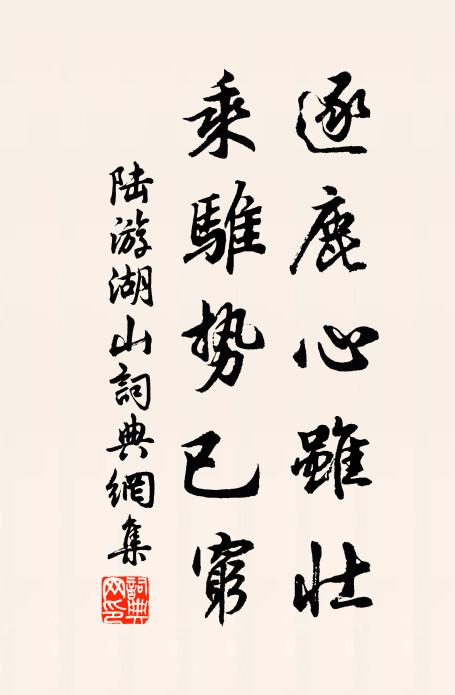 逐鹿心雖壯
乘騅势已窮
陆游湖山詞典網集
詞典网印